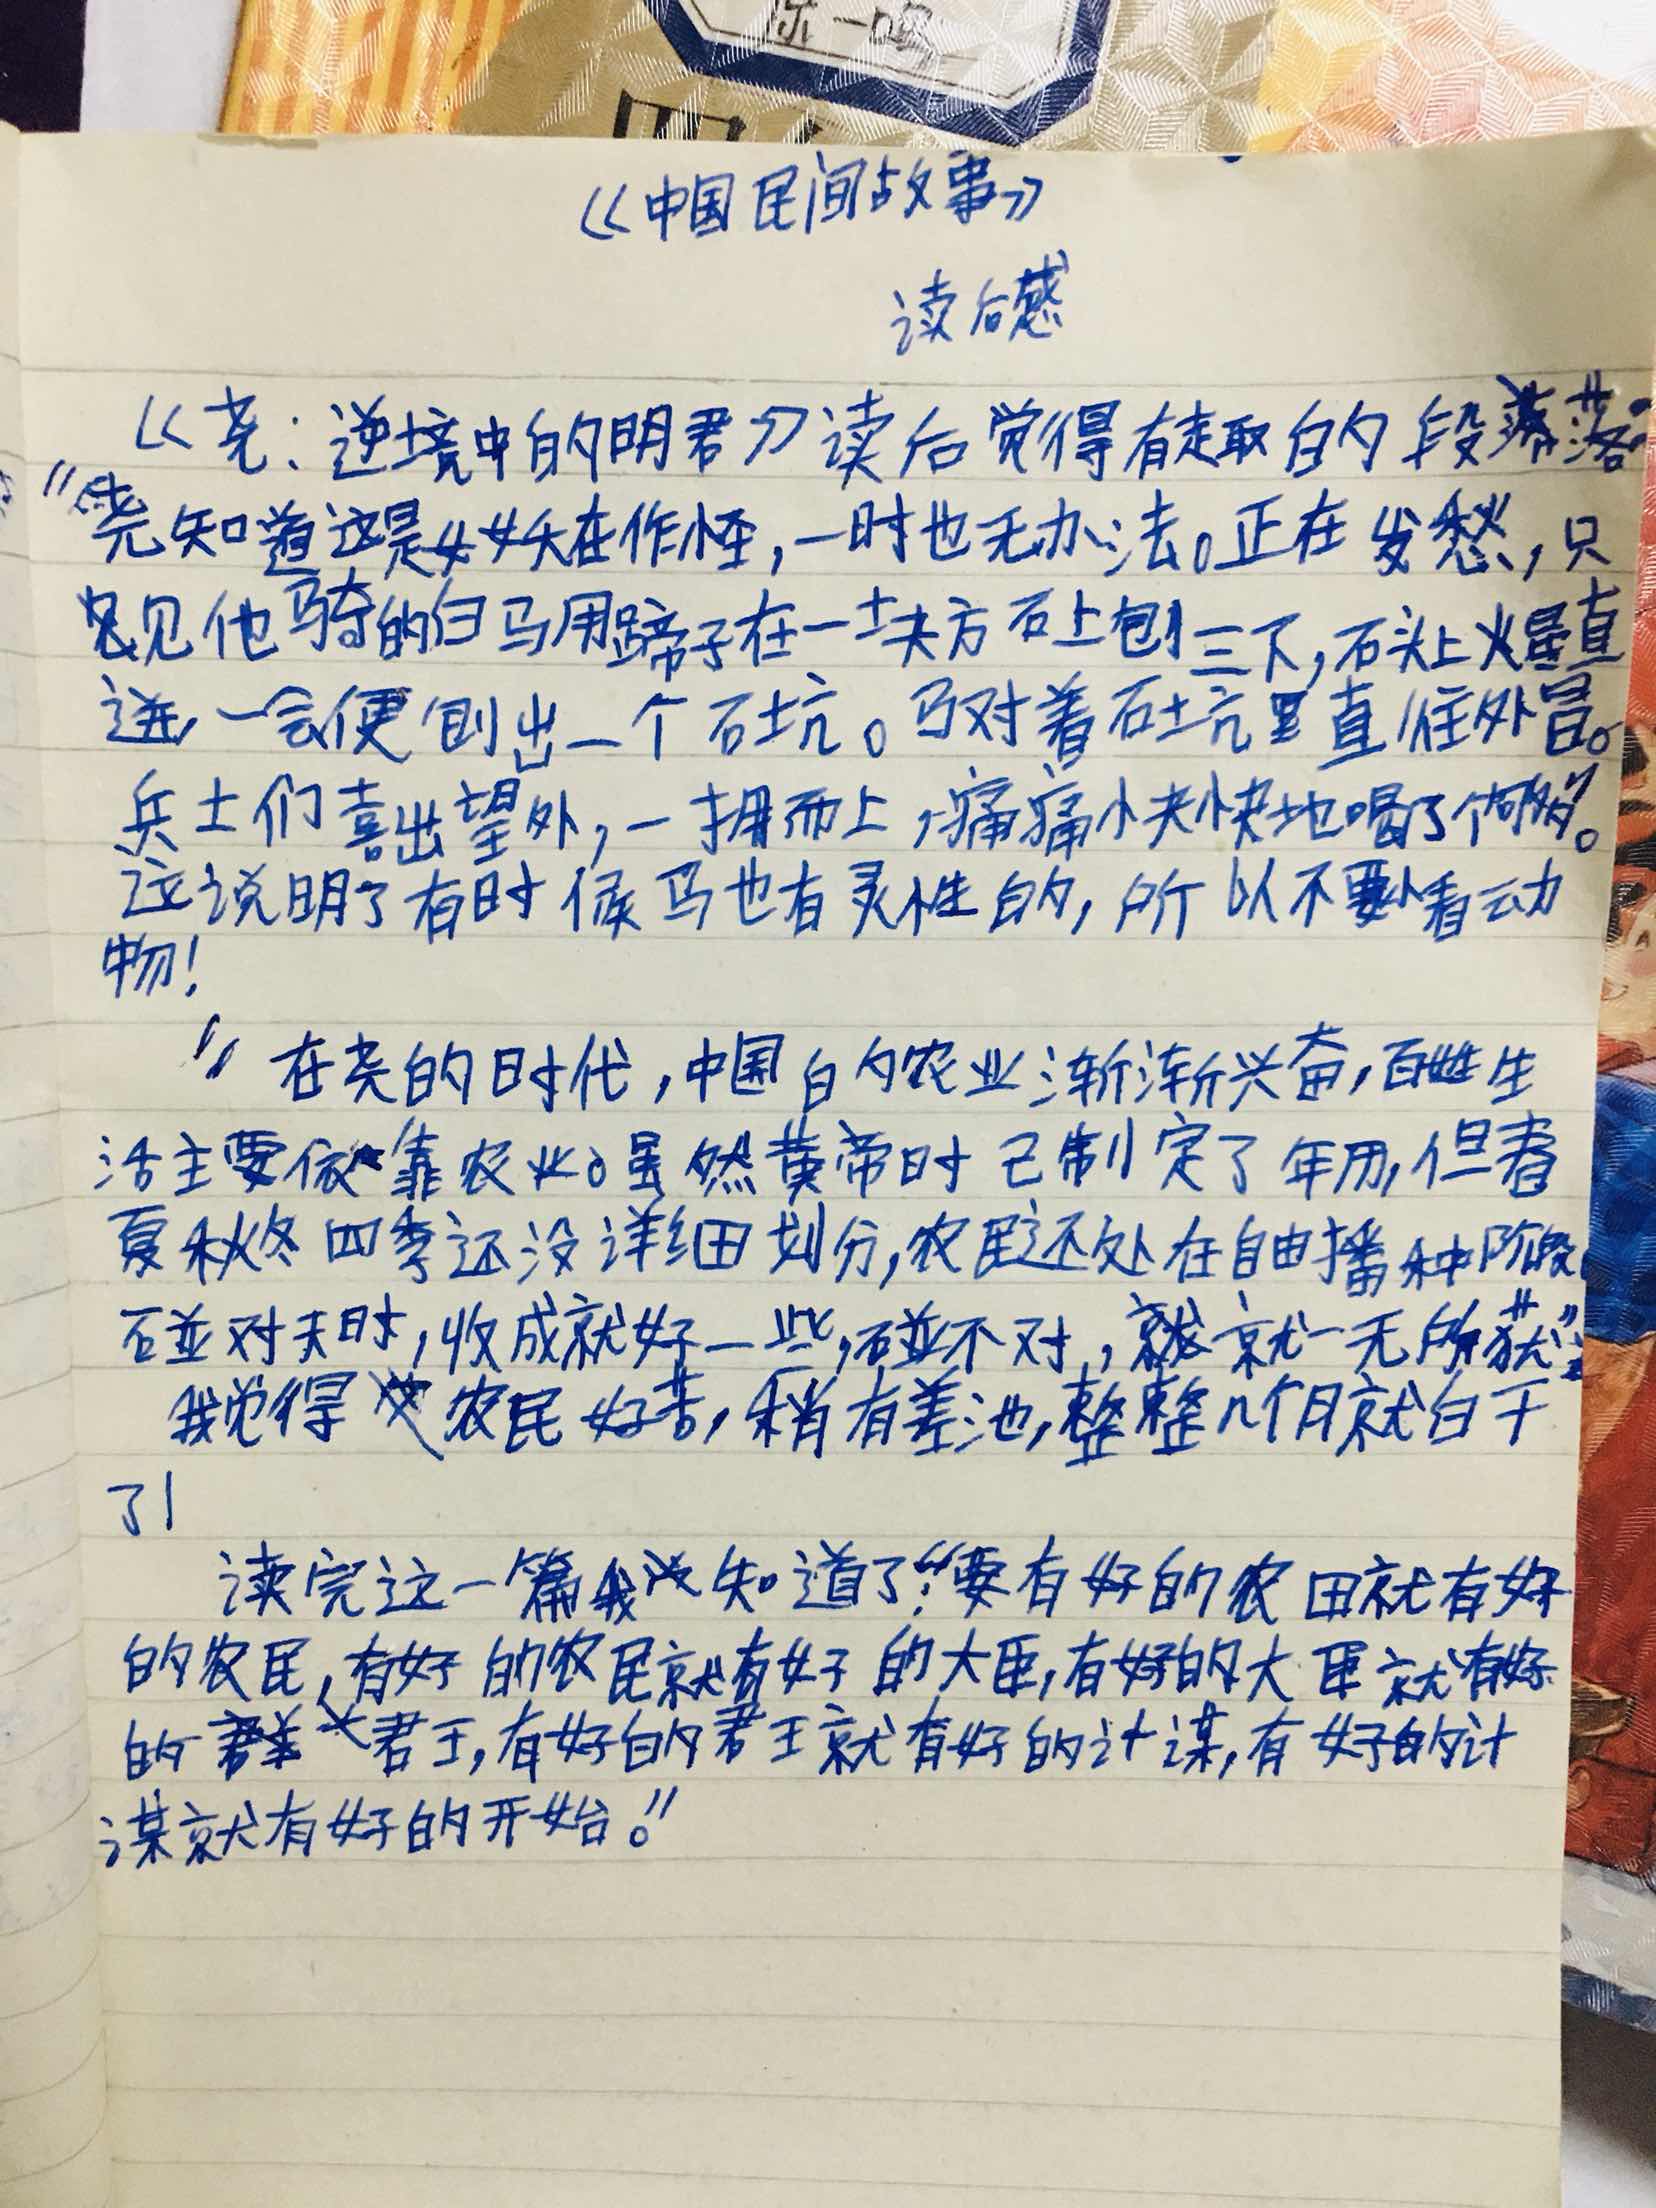 《中国民间故事》
读后感
《尧：逆境中的明君》读后觉得有趣的段落
“尧知道这是女妖在作怪，一时也无办法。正在发愁，只
见他骑的白马用蹄子在一块方石上刨三下，石头上火星直
迸，一会便刨出一个石坑。马对着石坑里直往外冒。
兵士们喜出望外，一拥而上，痛痛快快地喝了个够”。
这说明了有时候马也有灵性的，所以不要小看动
物！
“在尧的时代，中国的农业渐渐兴奋，百姓生
活主要依靠农业。虽然黄帝时已制定了年历，但春
夏秋冬四季还没详细划分，农民还处在自由播种阶段
碰对天时，收成就好一些，碰不对，就一无所获”
我觉得农民好苦，稍有差池，整整几个月就白干
了！
读完这一篇我知道了：“要有好的农田就有好
的农民，有好的农民就有好的大臣，有好的大臣就有好
的君王，有好的君王就有好的计谋，有好的计
谋就有好的开始。”